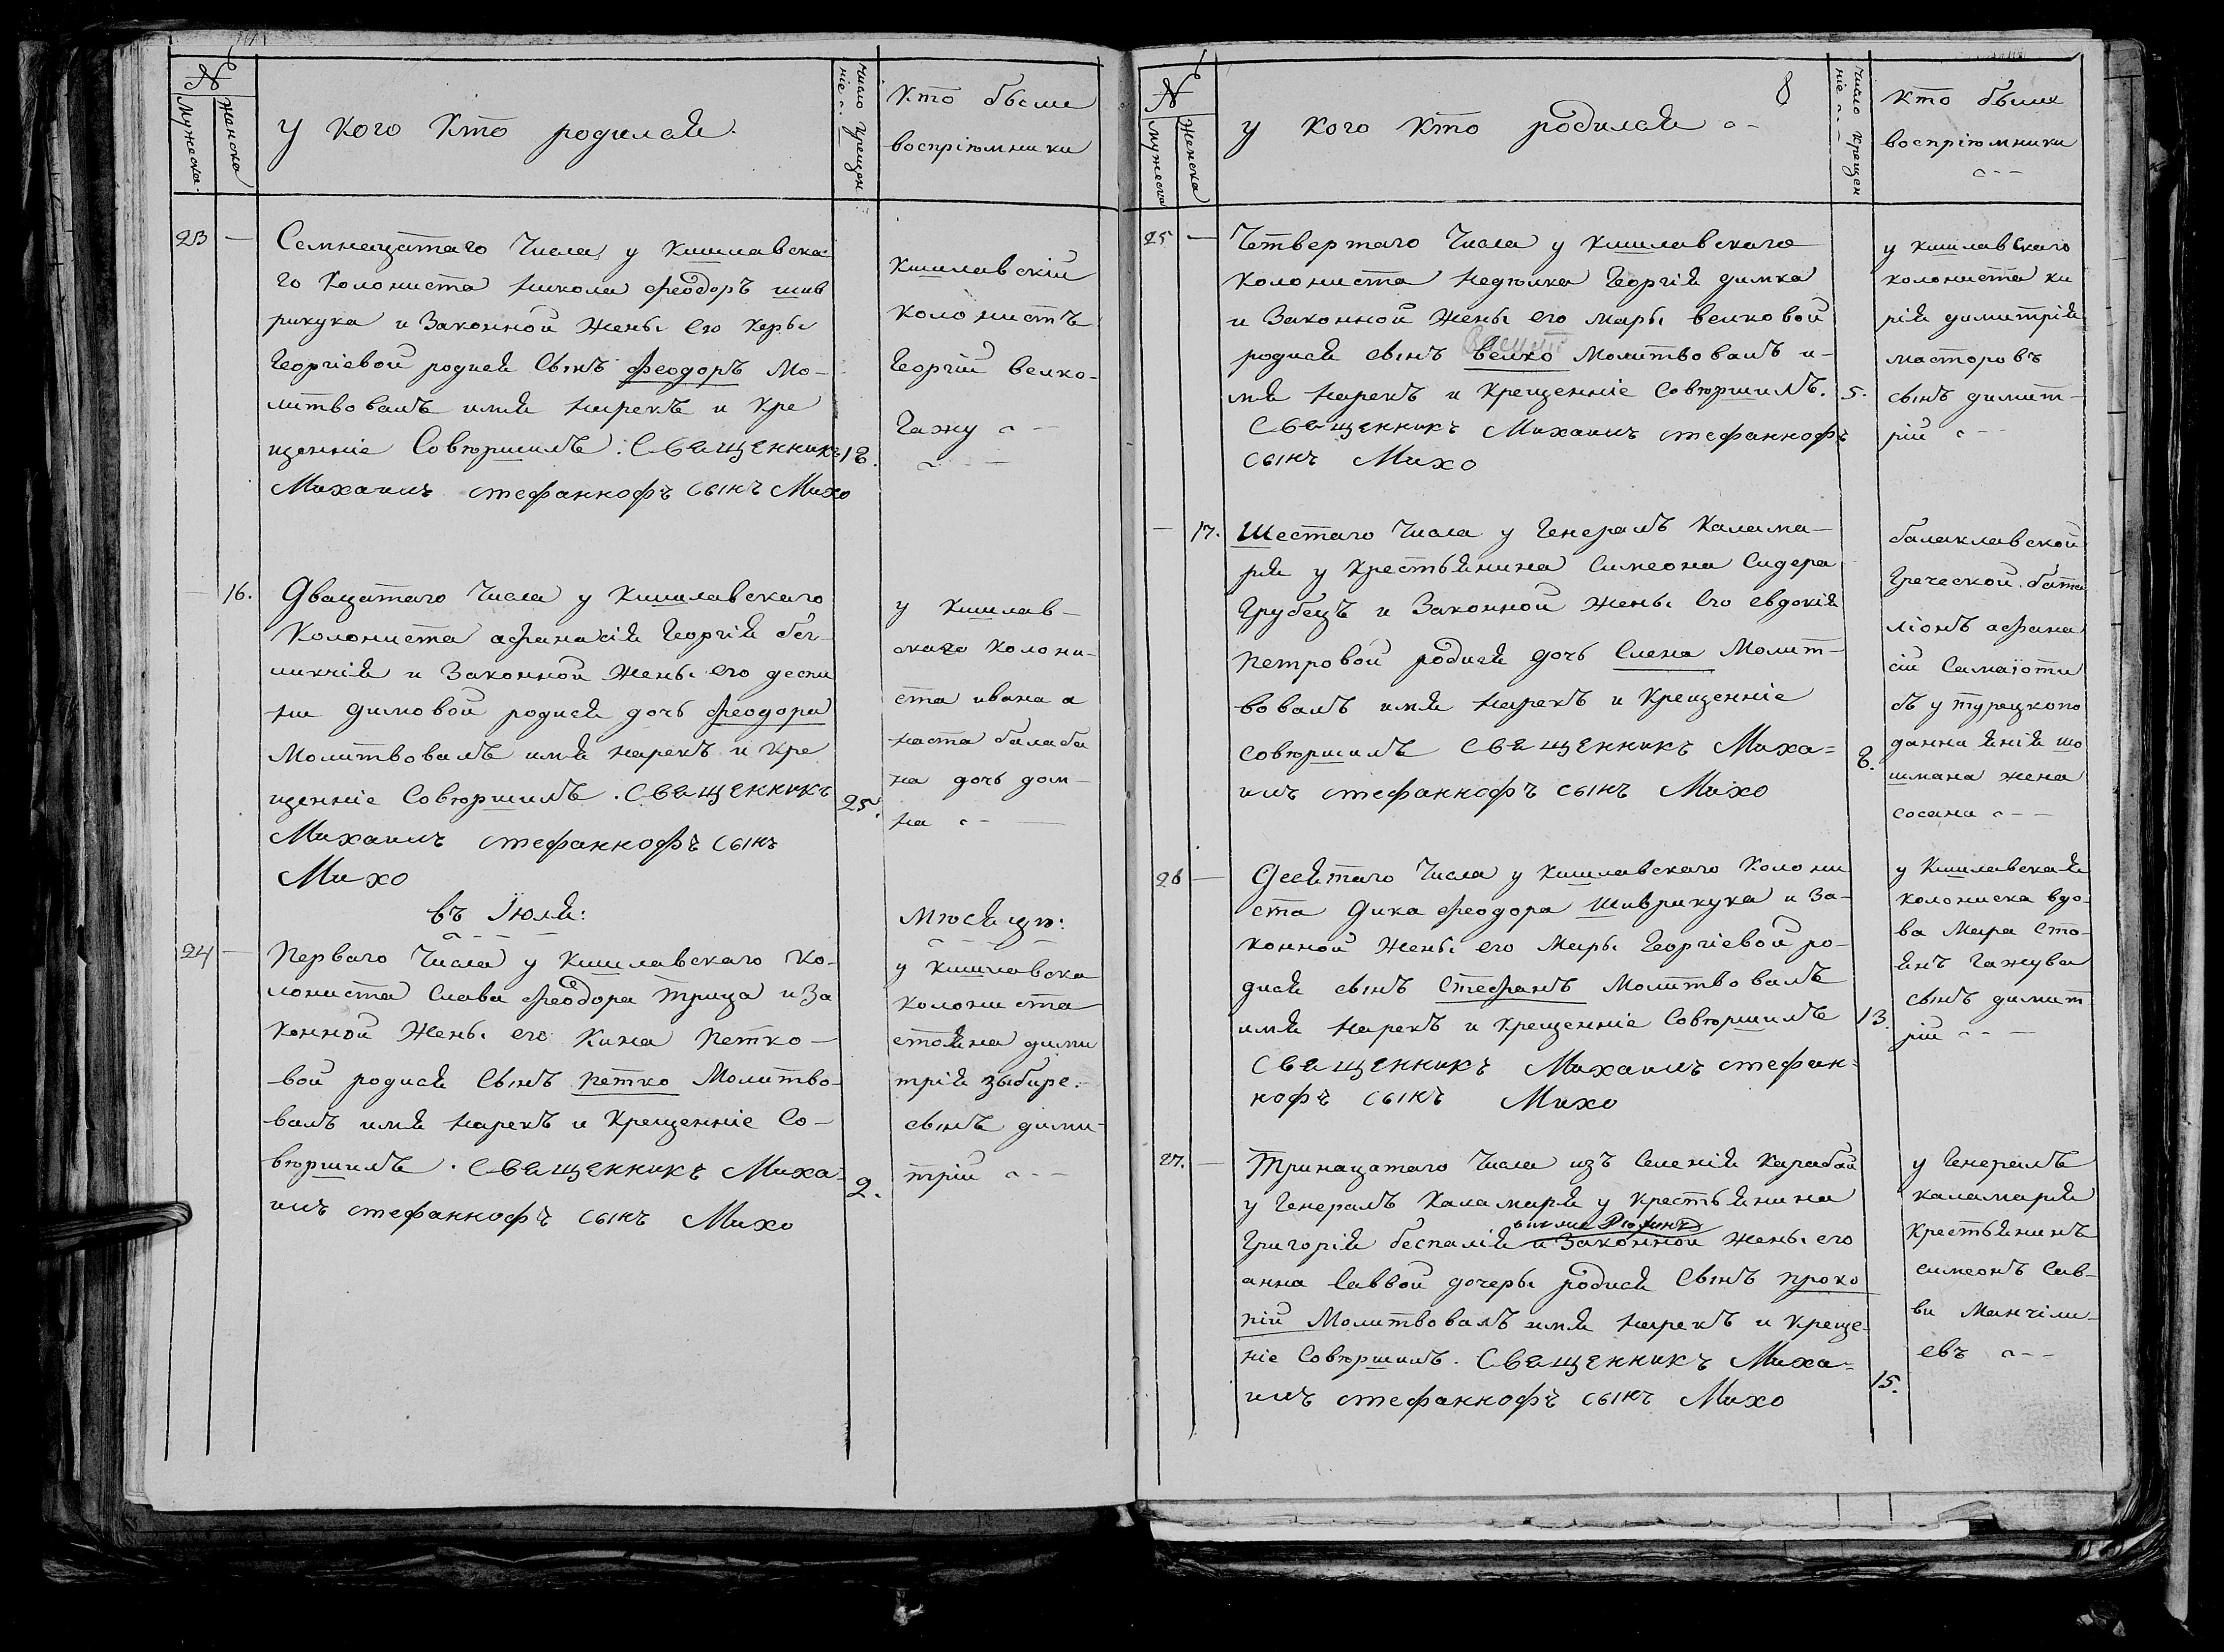 №
Мужеска.
Женска
у кого кто родился.
число крещен
ніе
кто были
воспріюмники
23 —
Семнацатаго Числа у Кишлавска
го Колониста Никола Феодоръ шив
рикука и Законной жены его Керы
Георгіевой родися Сынъ Феодоръ Мо-
литвовалъ имя Нарекъ и Кре
щенніе Совюршилъ. Священникъ 18.
Михаилъ стефанкофъ сынъ Михо
Кишлавскій
колонистъ
Георгій велко-
Гажу
— 16.
Двацатаго Числа у Кишлавскаго
Колониста афанасія Георгія бег-
ликчія и Законной жены его деспи
ни Димовой родися дочь Феодора
Молитвовалъ имя нарекъ и Кре
щенніе Совюршилъ. Священникъ 25.
Михаилъ стефанкофъ сынъ
Михо
у Кишлав-
скаго колони-
ста ивана а
наста балаба
на дочь дом-
на
въ Іюля:
Мюсяцю:
24 —
Перваго Числа у Кишлавскаго Ко-
лониста Слава Феодора Трица и За
конной жены его Кина Петко-
вой родися Сынъ Петко Молитво-
валъ имя нарекъ и Крещенніе Со-
вюршилъ. Священникъ Миха- 2.
илъ стефанкофъ сынъ Михо
у Кишлавска
колониста
стояна дими
трія зыбире.
сынъ дими-
трій
8
№
Мужеска
Женска
у кого кто родился
число крещен
ніе
кто были
воспріюмники
25 —
Четвертаго Числа у Кишлавскаго
колониста недюлка Георгія димка
и Законной жены его Мары велковой
родися сынъ велко Молитвовалъ и-
мя нарекъ и Крещенніе Совюршилъ. 5.
Священникъ Михаилъ стефанкофъ
сынъ Михо
у кишлавскаго
колониста ки
рія димитрія
масторовъ
сынъ димит-
рій
— 17.
Шестаго Числа у Генералъ Калама-
рія у Крестьянина Симеона Сидера
Грубецъ и Законной жены его евдокія
Петровой родися дочь Елена Молит-
вовалъ имя нарекъ и Крещенніе
совюршилъ Священникъ Миха= 8.
илъ стефанкофъ сынъ Михо
балаклавской
Греческой бата
ліонъ афана
сій Самаіоти
бъ у турецкопо
данна янія шо
ишмана жена
сосана
26 —
Десятаго Числа у Кишлавскаго Колони
ста Дика Феодора Шиврикука и за-
конной жены его Мары Георгіевой ро-
дися сынъ Стефанъ Молитвовалъ
имя нарекъ и Крещенніе Совюршилъ 13.
Священникъ Михаилъ стефан-
кофъ сынъ Михо
у Кишлавская
колониска вдо-
ва Мара Сто-
янъ Гажува
сынъ димит
рій
27. —
Тринацатаго Числа изъ Селенія Карабай
у Генералъ Каламарія у Крестьянина
Григорія беспалія и Законной жены его
анна Саввой дочеры родися Сынъ Проко
пій Молитвовалъ имя нарекъ и Креще-
ніе Совюршилъ. Священникъ Миха= 15.
илъ стефанкофъ сынъ Михо
у Генералъ
каламарія
крестьянинъ
симеонъ Сав-
ви Манчіли-
евъ